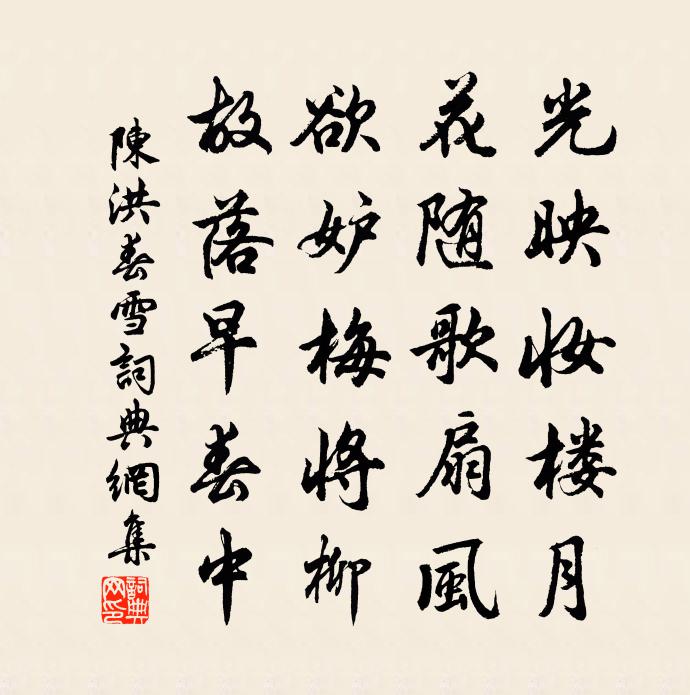 光映妆楼月
花随歌扇風
欲妒梅将柳
故落早春中
陳洪春雪詞典網集
詞典网印